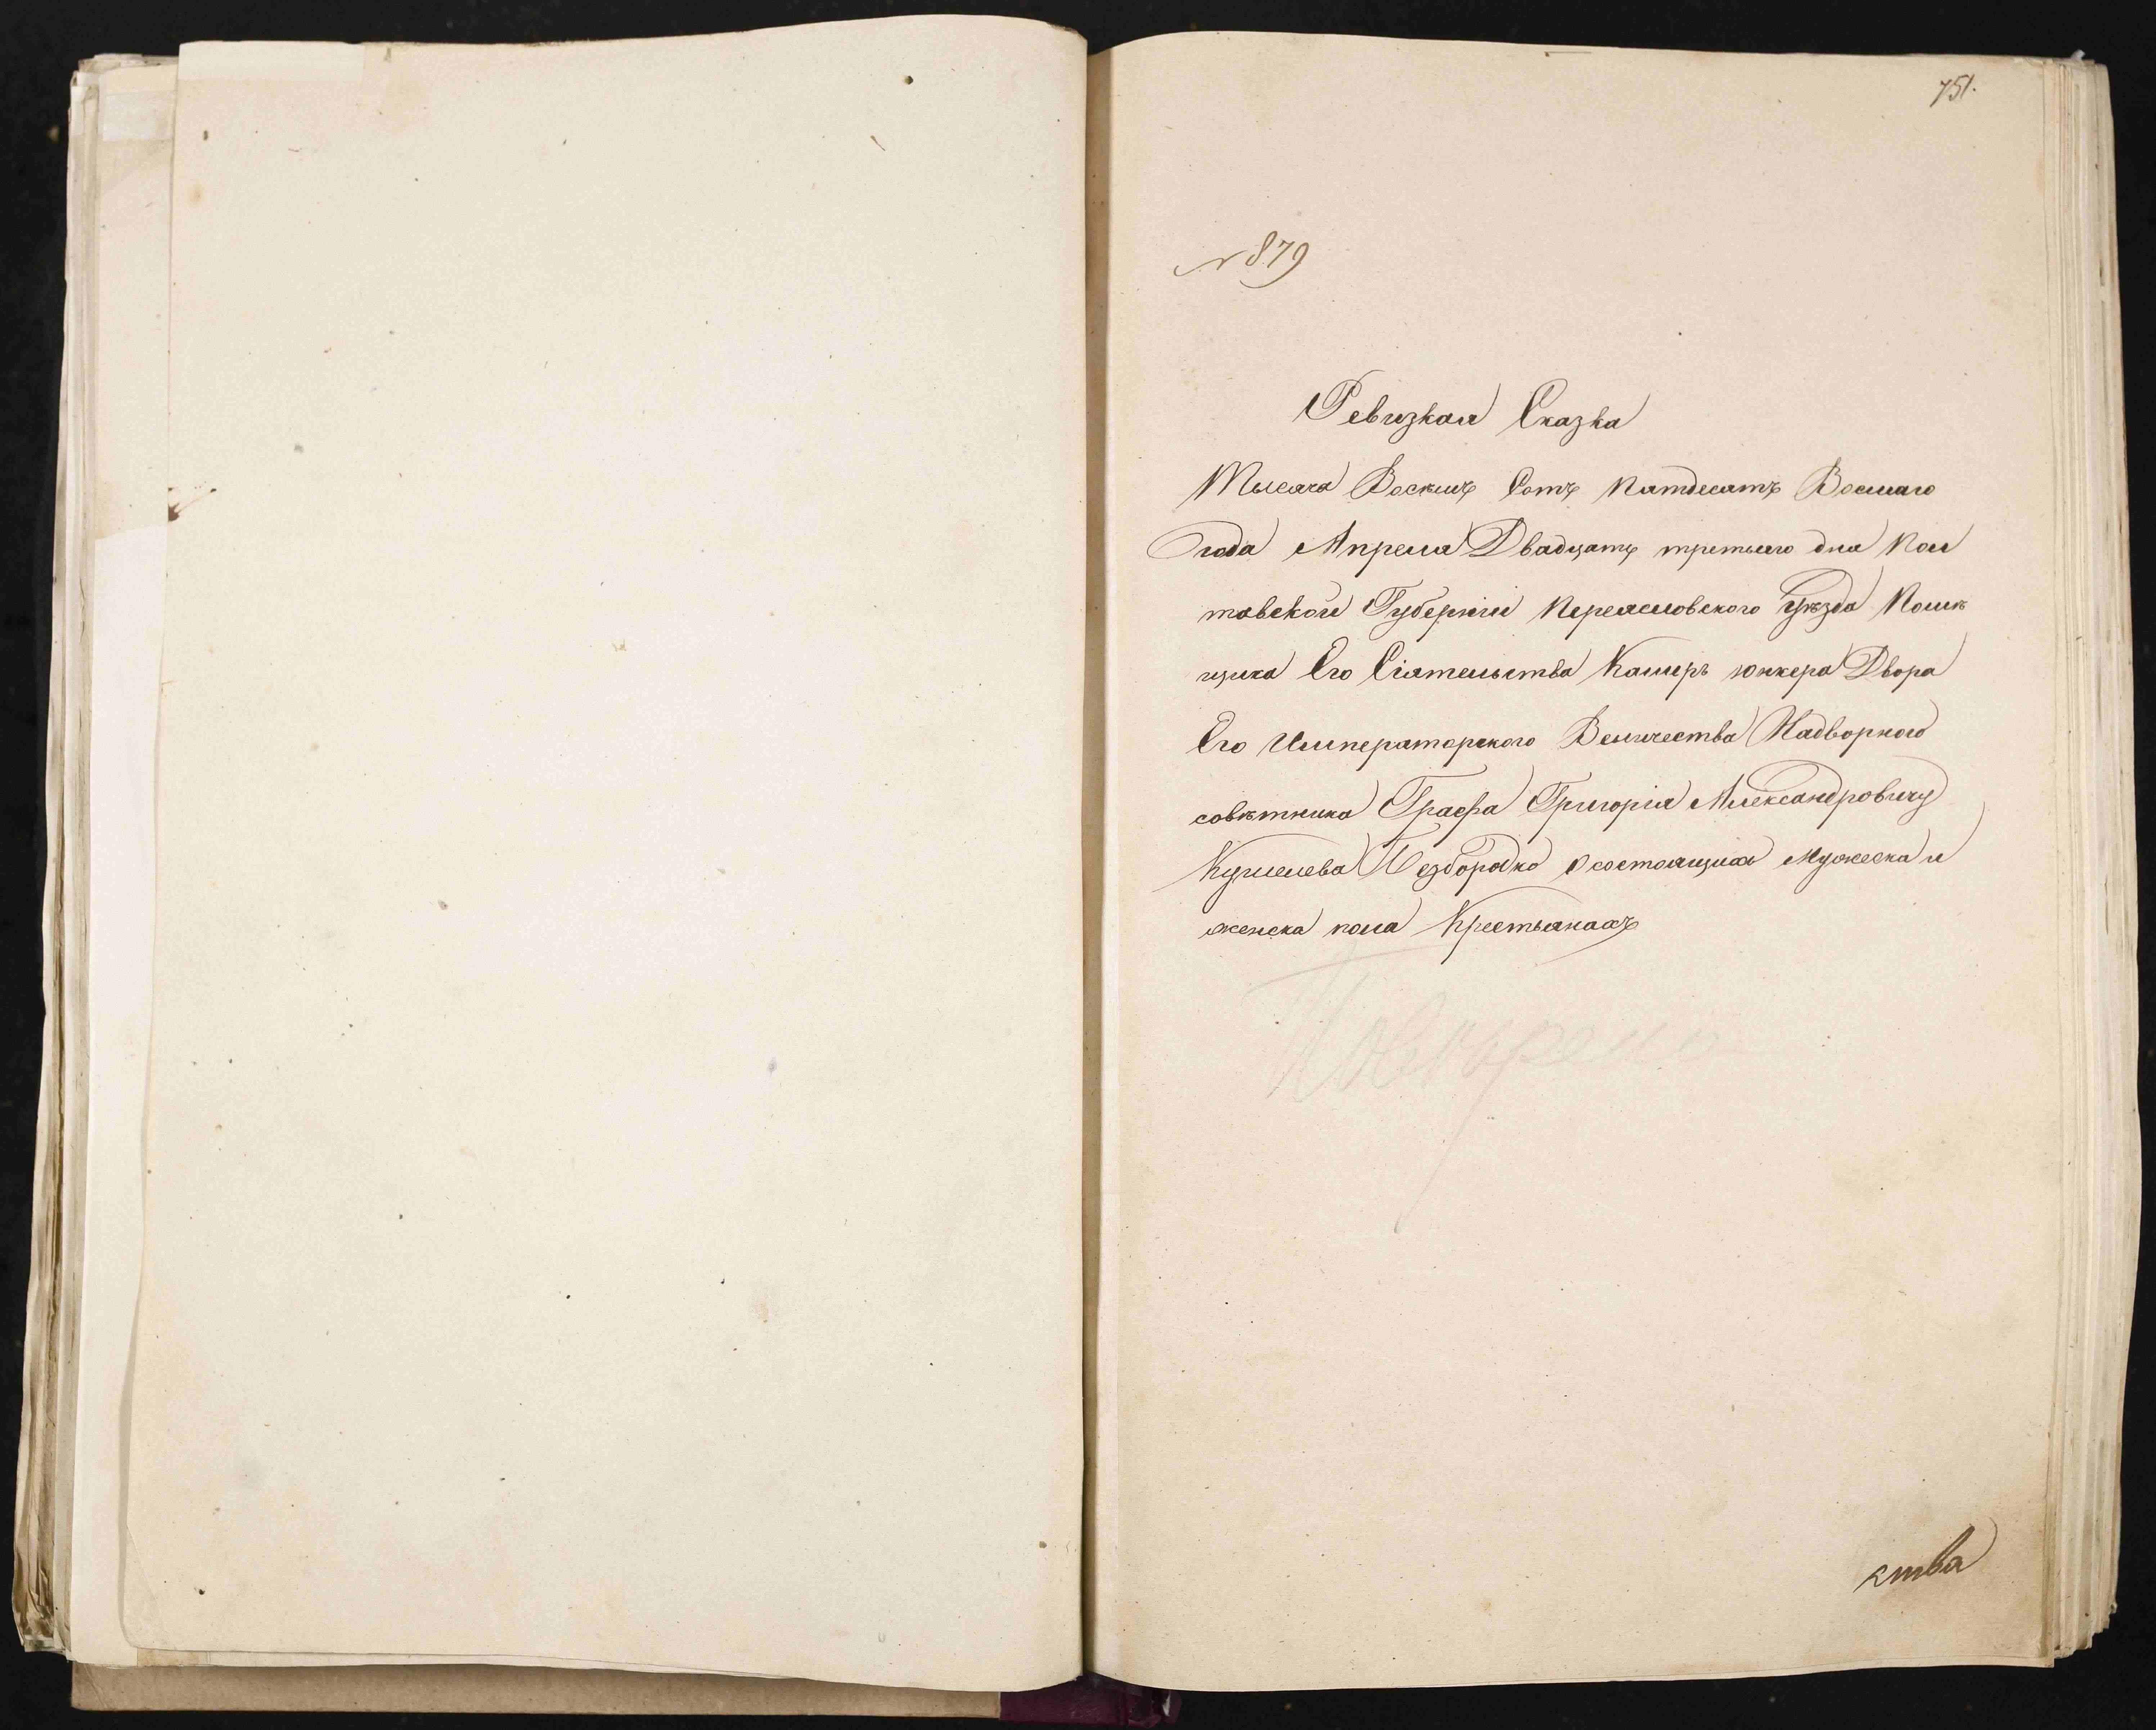 751.
№ 879
Ревизкая Сказка
Тысяча Восемъ Сотъ Пятдесятъ Восмаго
года Апреля Двадцать третьяго дня Пол
тавской Губерніи Переясловского Уѣзда Помѣ
щика Его Сіятельства Камеръ юнкера Двора
Его Императорского Величества Надворного
совѣтника Графа Григорія Александровичу
Кушелева Безбородко о состоящихъ мужеска и
женска пола Крестьянахъ
Повѣрено
ства